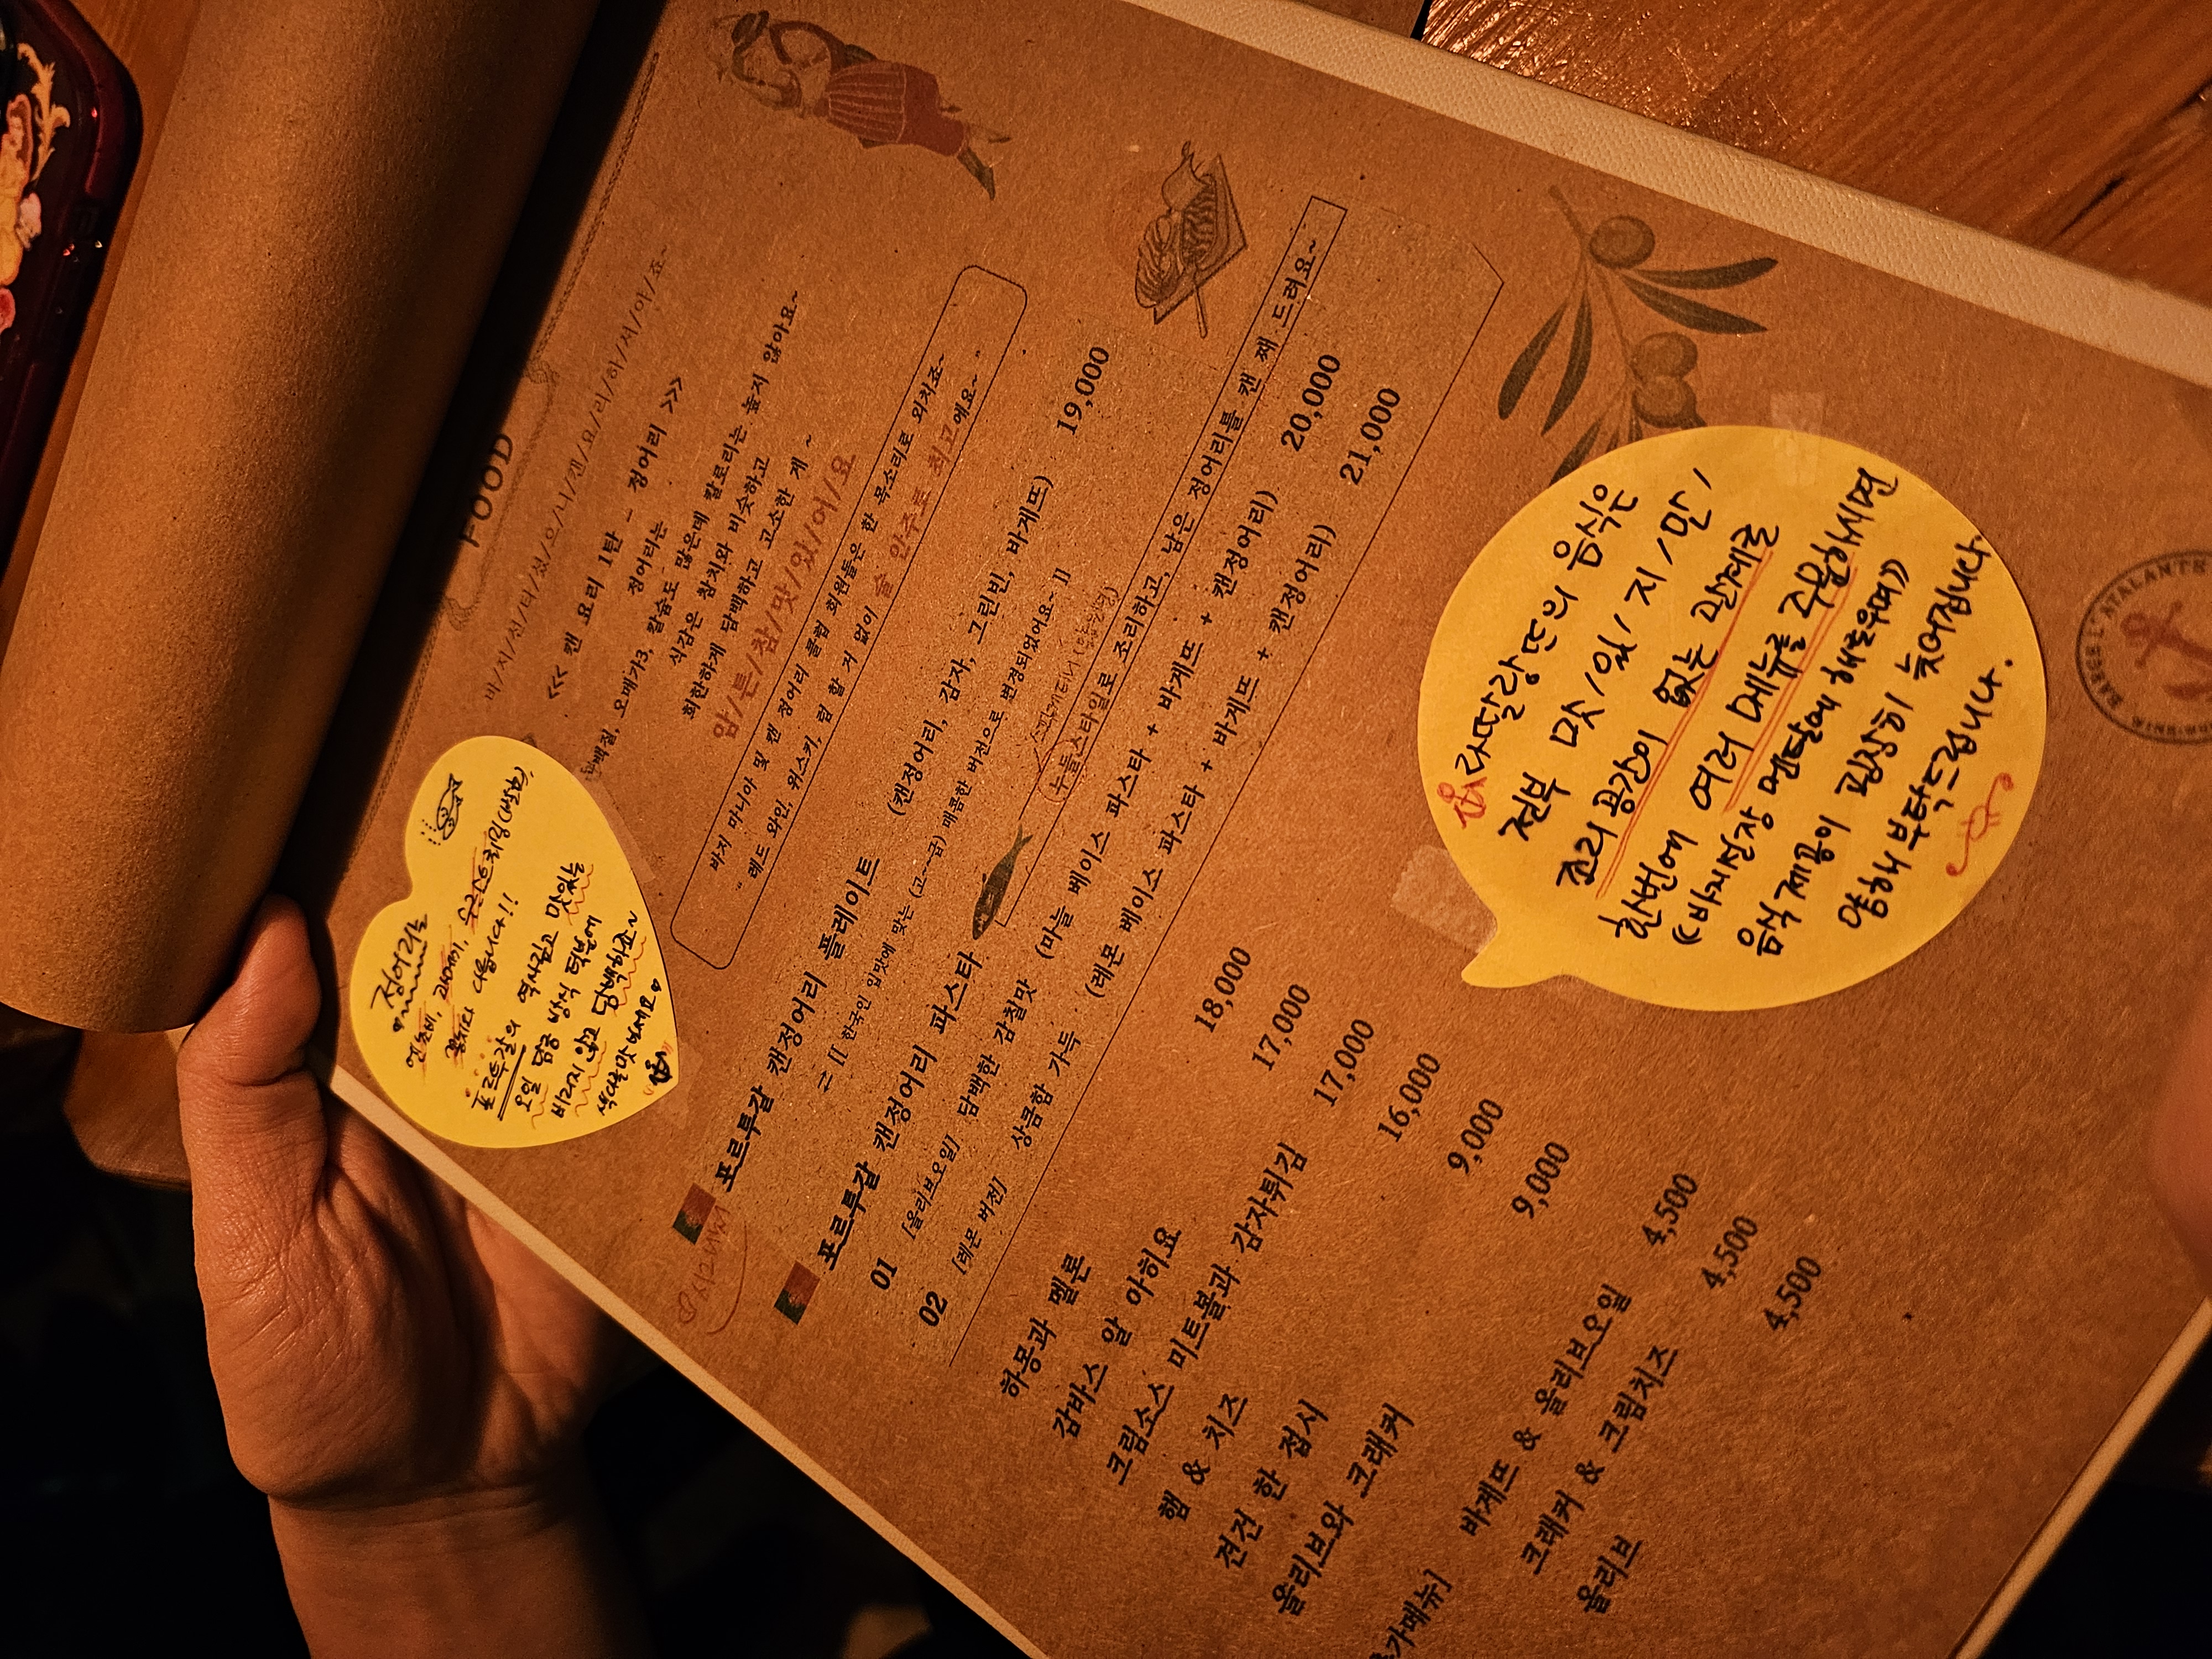 FOOD
바/지/선/터/줬/으/니/캔/요/리/하/셔/야/죠~
<<< 캔 요리 1탄 - 정어리 >>>
정어리는
단백질, 오메가3, 칼슘도 많은데 칼로리는 높지 않아요~
식감은 참치와 비슷하고
희한하게 담백하고 고소한 게 ~
암/튼/참/맛/있/어/요
바지 마니아 및 캔 정어리 클럽 회원들은 한 목소리로 외치죠~
"레드 와인, 위스키, 럼 할 거 없이 술 안주로 최고예요~"
정어리는
연준비, 고등어찌,
꽁치와 다릅니다!!
포르투갈의 역사깊고 맛있는
오일 절임 방식 덕분에
비리지 않고 담백하죠~
색다른맛 보세요
시그니처
포르투갈 캔정어리 플레이트 (캔정어리, 감자, 그린빈, 바게뜨) 19,000
⇒ [[ 한국인 입맛에 맞는 (고~급) 매콤한 버전으로 변경되었어요~ ]]
스파게티니 (납작면)
포르투갈 캔정어리 파스타 누들스타일로 조리하고, 남은 정어리를 캔 째 드려요~
01 [올리브오일] 담백한 감칠맛 (마늘 베이스 파스타 + 바게뜨 + 캔정어리) 20,000
02 [레몬 버전] 상큼함 가득 (레몬 베이스 파스타 + 바게뜨 + 캔정어리) 21,000
하몽과 멜론 18,000
감바스 알 아히요 17,000
크림소스 미트볼과 감자튀김 17,000
햄 & 치즈 16,000
견건 한 접시 9,000
올리브와 크래커 9,000
추가메뉴] 바게뜨 & 올리브오일 4,500
크래커 & 크림치즈 4,500
올리브 4,500
라딸랑뜨의 음식은
전부 맛/있/지/만/
조리공간이 없는 관계로
한번에 여러 메뉴를 주문하시면
《바지선장 멘탈에 해로우며》
음식 제공이 굉장히 늦어집니다
양해 부탁드립니다.
BARGE L'ATALANTE